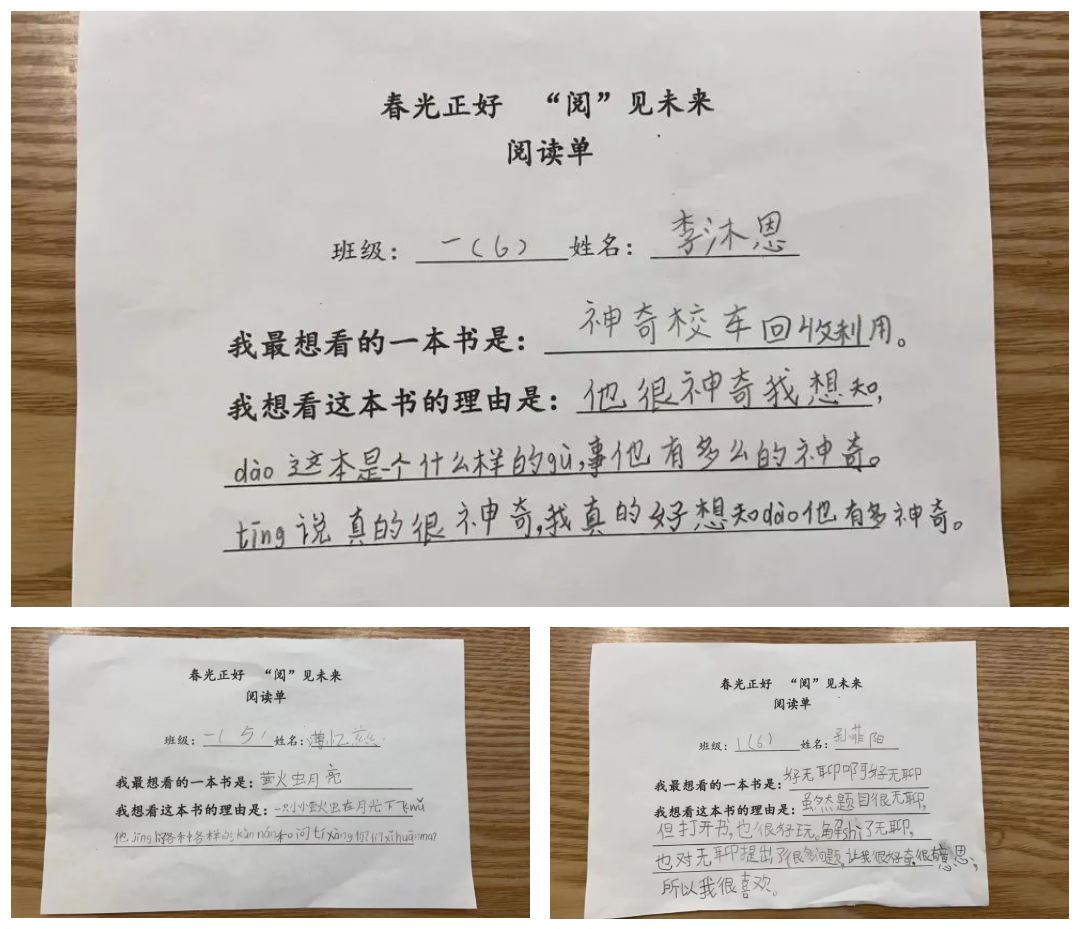 春光正好 “阅”见未来
阅读单
班级：一（6） 姓名：李沐恩
我最想看的一本书是：神奇校车回收利用。
我想看这本书的理由是：他很神奇我想知,
dào 这本是一个什么样的gù,事他有多么的神奇。
tīng说真的很神奇,我真的好想知dào他有多神奇。
春光正好 “阅”见未来
阅读单
班级：一（5） 姓名：薄忆
我最想看的一本书是：萤火虫月亮
我想看这本书的理由是：一只小小萤火虫在月光下飞wǔ
他jīng各种各样的kùn nán和问tí xiàng你们xǐhuān ma?
春光正好 “阅”见未来
阅读单
班级：1（6） 姓名：孔菲阳
我最想看的一本书是：好无聊啊好无聊
我想看这本书的理由是：虽然题目很无聊,
但打开书,也很好玩。解shì了无聊,
也对无聊提出了很多问题,让我很好奇,很有意思,
所以我很喜欢。